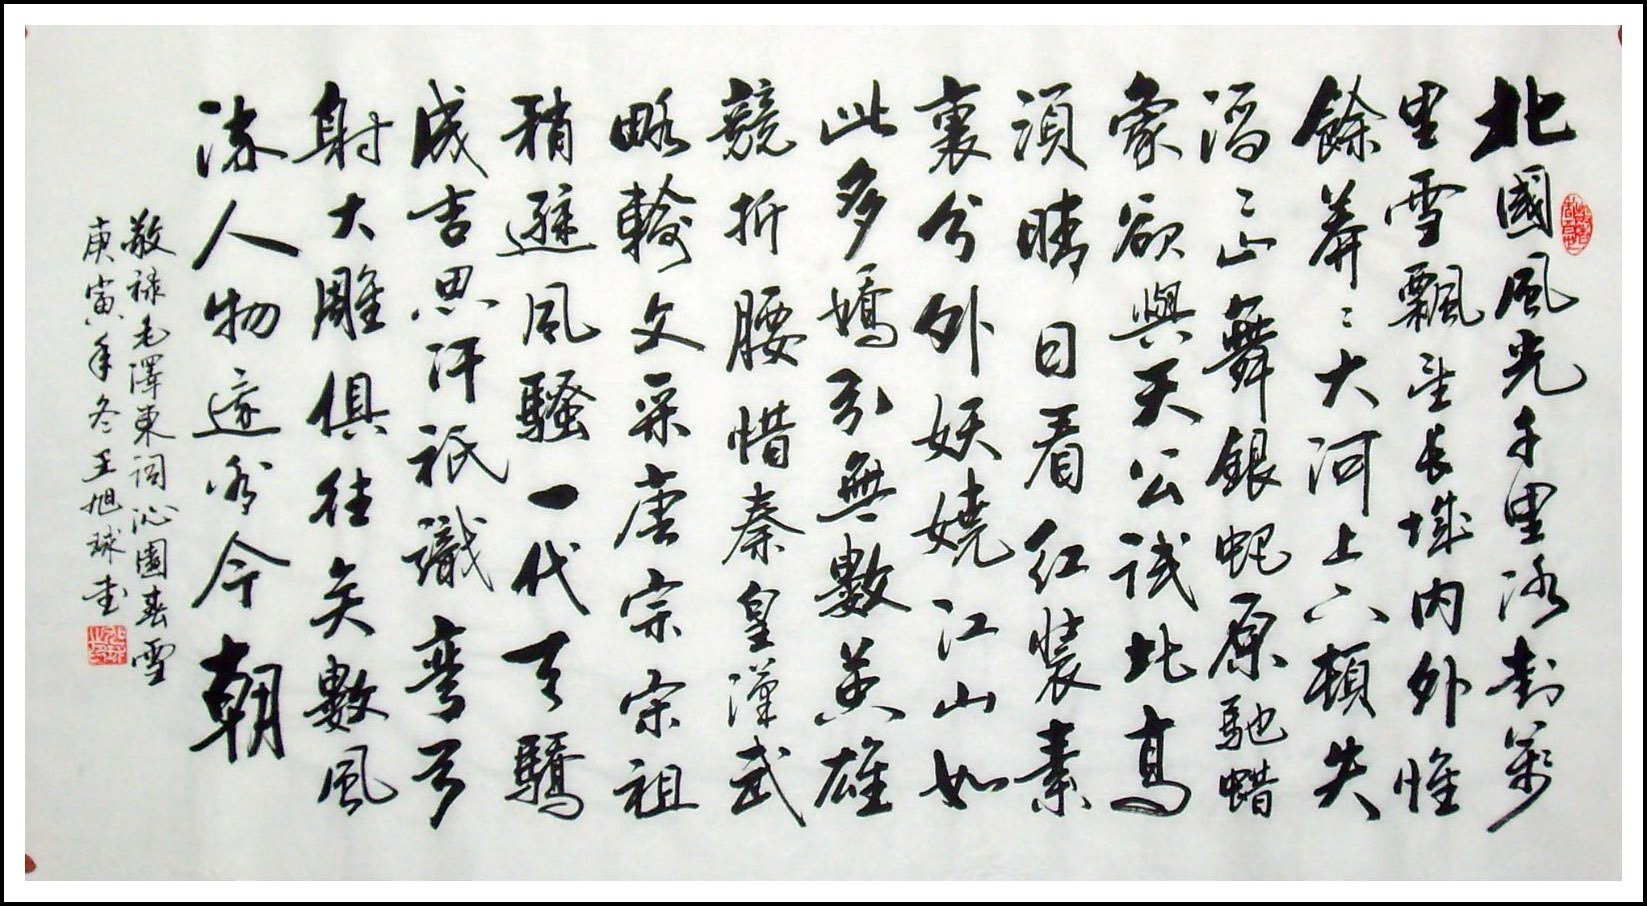 北國風光千里冰封萬
里雪飄望長城內外惟
餘莽〻大河上下頓失
滔〻山舞銀蛇原馳蜡
象欲與天公試比高
須晴日看紅裝素
裹分外妖嬈江山如
此多嬌引無數英雄
競折腰惜秦皇漢武
略輸文采唐宗宋祖
稍遜風騷一代天驕
成吉思汗祇識彎弓
射大雕俱往矣數風
流人物還看今朝
敬禄毛澤東詞沁園春雪
庚寅年冬王旭球書